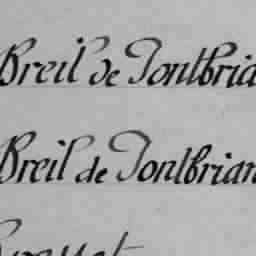 Breil de Tontbria
Breil de Tontbrian